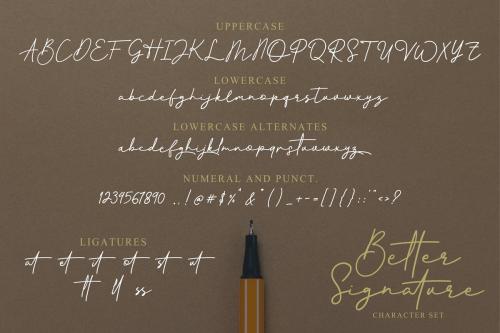 UPPERCASE
ABCDEFGHIJKLMNOPQRSTUVWXYZ
LOWERCASE
abcdefghijklmnopqrstuvwxyz
LOWERCASE ALTERNATES
abcdefghijklmnopqrstuvwxyz
NUMERAL AND PUNCT.
1234567890 .,!@#$%^&*()_+-=[]{}:;"'<>?
LIGATURES
at et it ot st ut
tt ll ss
Better
Signature
CHARACTER SET